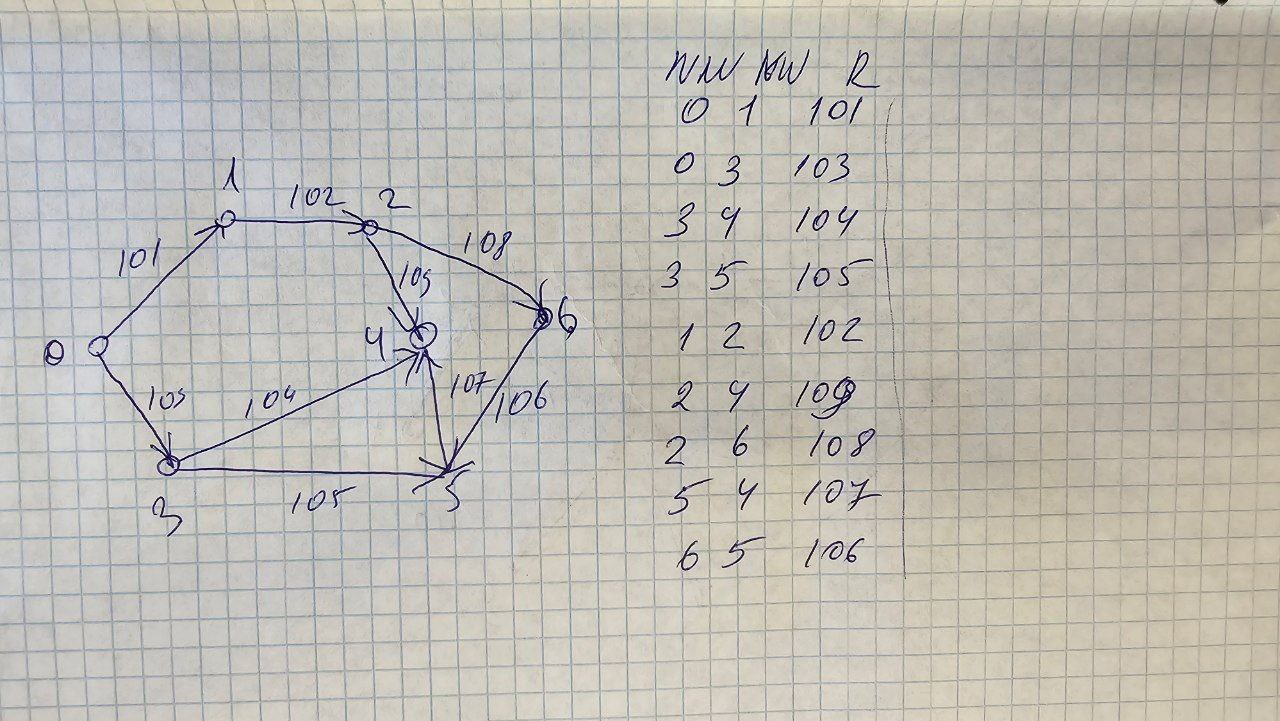 1
102 2
101
108
109
4
6
0
103
104
107
106
3
105
5
R
0 1 101
0 3 103
3 4 104
3 5 105
1 2 102
2 4 109
2 6 108
5 4 107
6 5 106